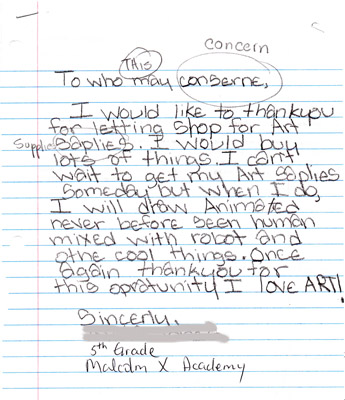 concern
THIS
To who may conserne,
I would like to thankyou
for letting Shop for Art
Supplies Saplies. I would buy
lots of things. I can't
wait to get my Art saplies
Someday but when I do,
I will draw Animated
never before seen human
mixed with robot and
othe cool things. Once
again thankyou for
this oprotunity I love ART!
Sincerly,
5th Grade
Malcolm X Academy